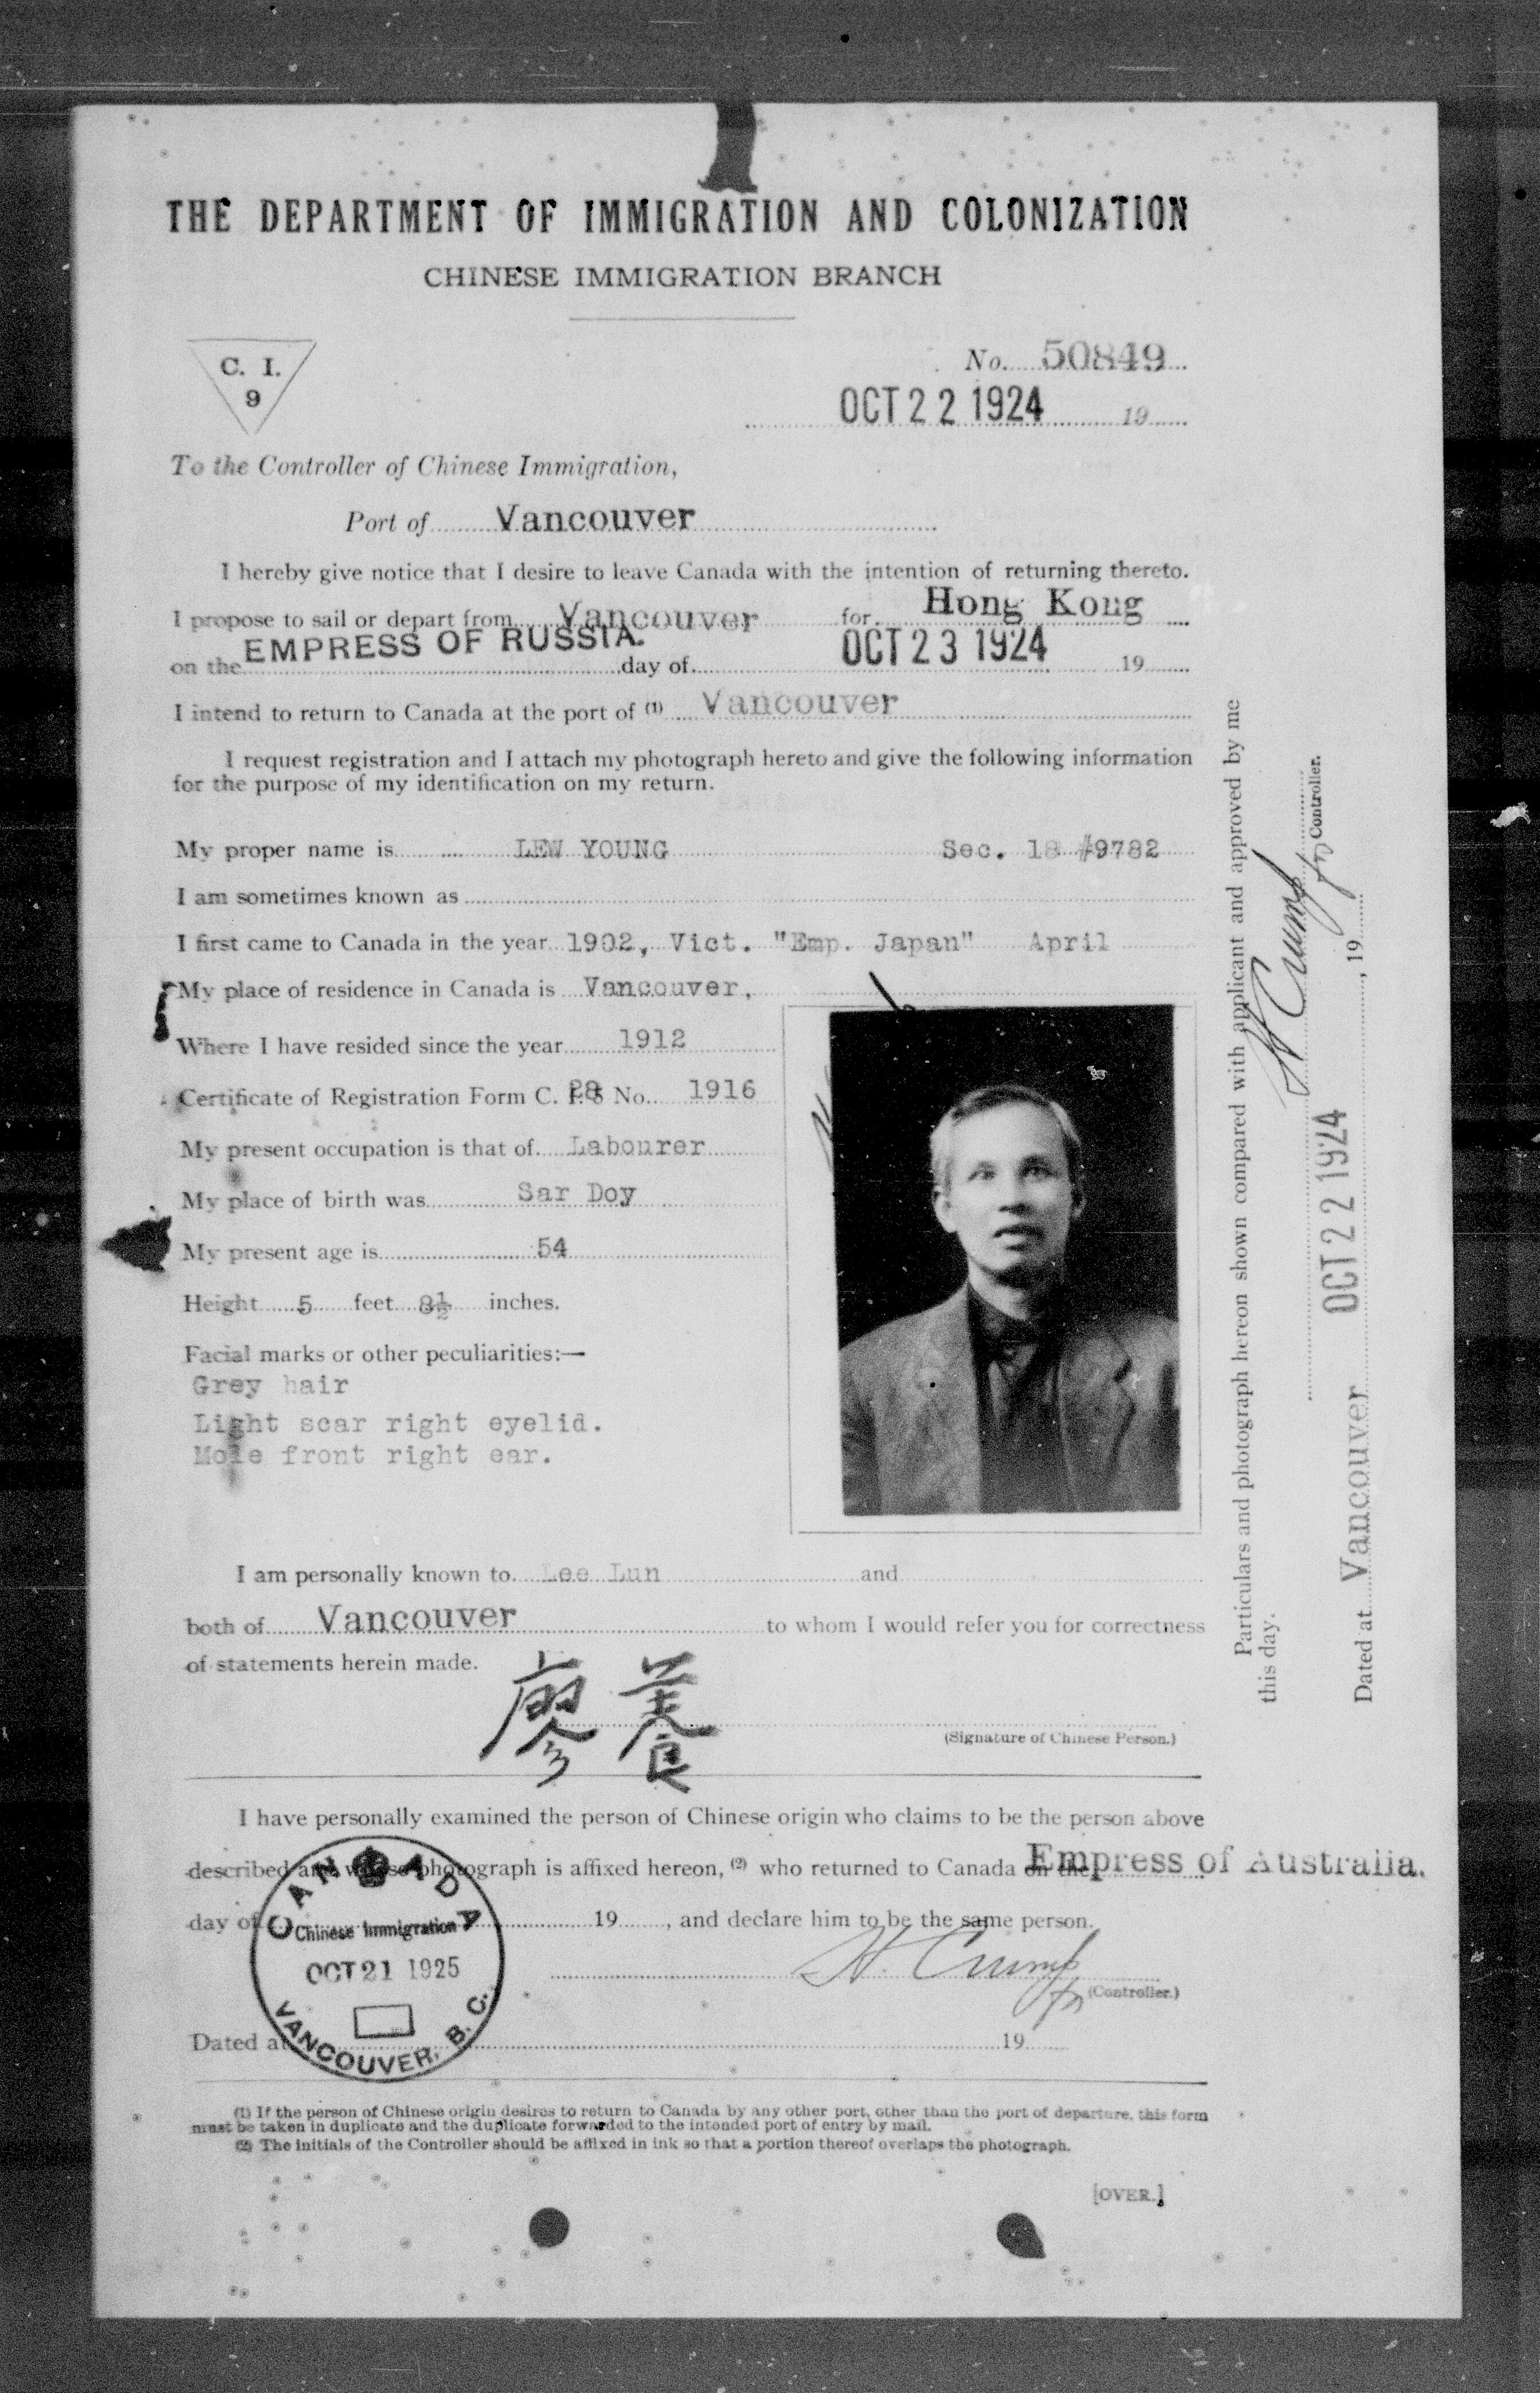 THE DEPARTMENT OF IMMIGRATION AND COLONIZATION
CHINESE IMMIGRATION BRANCH
C. I.
9
No. 50849
OCT 22 1924 19
To the Controller of Chinese Immigration,
Port of Vancouver
I hereby give notice that I desire to leave Canada with the intention of returning thereto.
I propose to sail or depart from Vancouver for Hong Kong
on the EMPRESS OF RUSSIA. day of OCT 23 1924 19
I intend to return to Canada at the port of (1) Vancouver
I request registration and I attach my photograph hereto and give the following information
for the purpose of my identification on my return.
My proper name is LEW YOUNG Sec. 18 #9782
I am sometimes known as
I first came to Canada in the year 1902, Vict. "Emp. Japan" April
My place of residence in Canada is Vancouver,
Where I have resided since the year 1912
Certificate of Registration Form C. I. 28 No. 1916
My present occupation is that of Labourer
My place of birth was Sar Doy
My present age is 54
Height 5 feet 8½ inches.
Facial marks or other peculiarities:—
Grey hair
Light scar right eyelid.
Mole front right ear.
I am personally known to Lee Lun and
both of Vancouver to whom I would refer you for correctness
of statements herein made.
廖養
(Signature of Chinese Person.)
I have personally examined the person of Chinese origin who claims to be the person above
described and whose photograph is affixed hereon, (2) who returned to Canada on the Empress of Australia.
day of 19 , and declare him to be the same person.
H. Crump
for (Controller.)
Dated at 19
CANADA
Chinese Immigration
OCT 21 1925
VANCOUVER, B. C.
(1) If the person of Chinese origin desires to return to Canada by any other port, other than the port of departure, this form
must be taken in duplicate and the duplicate forwarded to the intended port of entry by mail.
(2) The initials of the Controller should be affixed in ink so that a portion thereof overlaps the photograph.
[OVER.]
Particulars and photograph hereon shown compared with applicant and approved by me
this day.
H Crump
for Controller.
Dated at Vancouver OCT 22 1924 , 19